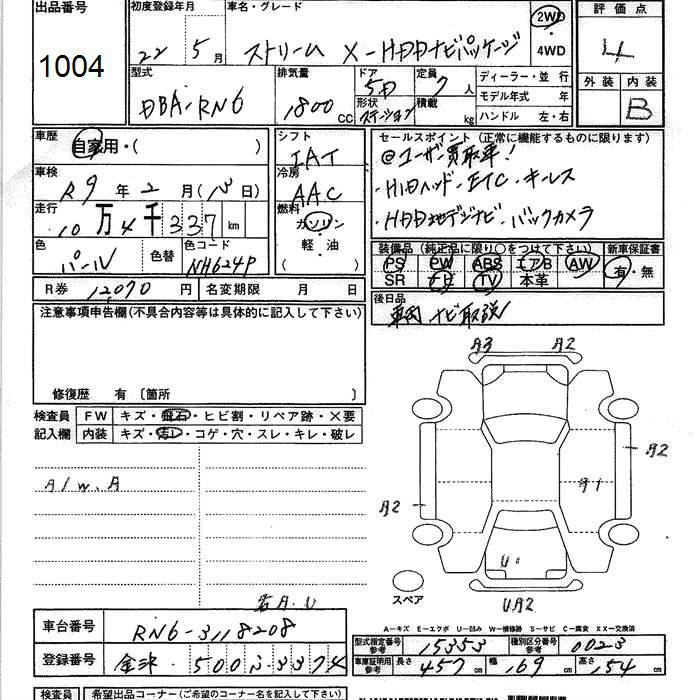 出品番号
1004
初度登録年月
22 年 5 月
車名・グレード
ストリーム X-HDDナビパッケージ
2WD
・
4WD
評価点
4
外装 内装
B
型式
DBA-RN6
排気量
1800 CC
ドア
5D
形状
ステーション
定員
7人
積載
kg
ディーラー・並行
モデル年式 年
ハンドル 左・右
車歴
自家用・( )
車検
R9年2月(13日)
走行
10万4千337km
色
パール
色替
色コード
NH624P
シフト
IAT
冷房
AAC
燃料
ガソリン
・
軽・油
( )
セールスポイント (正常に機能するものに限ります)
@ユーザー買取車!
・HIDヘッド・ETC・キーレス
・HDD地デジナビ・バックカメラ
装備品 (純正品に限り○をつけて下さい)
PS PW ABS エアB AW
SR ナビ TV 本革
新車保証書
有・無
R券 12070円
名変期限 月 日
後日品
車両 ナビ取説
注意事項申告欄(不具合内容等は具体的に記入して下さい)
修復歴 有〔箇所 〕
検査員
記入欄
FW キズ・飛石・ヒビ割・リペア跡・×要
内装 キズ・汚レ・コゲ・穴・スレ・キレ・破レ
A/W.A
A3 A2
A2
A2
A1
U
スペア
UA2
A.U
A=キズ E=エクボ U=凹み W=補修跡 S=サビ C=腐食 XX=交換済
車台番号
RN6-3118208
登録番号
500 3374
型式指定番号
参考
15353
種別区分番号
参考
0023
車庫証明用
参考
長さ 457cm
幅 169cm
高さ 154cm
検査員
希望出品コーナー(ご希望のコーナー名を記入して下さい)